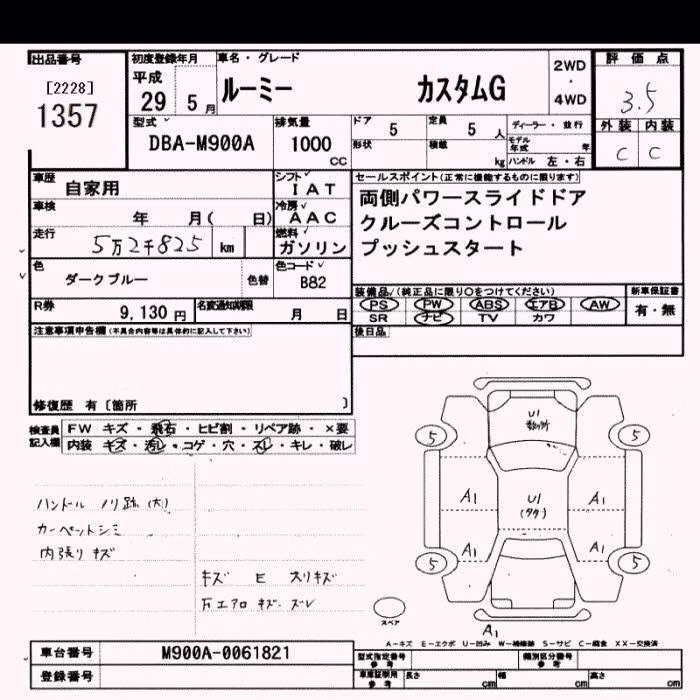 出品番号 初度登録年月 車名・グレード 2WD・4WD 評価点
[2228] 1357 平成29 5月 ルーミー カスタムG 3.5
型式 排気量 ドア 5 定員 5人 ディーラー・並行 外装 内装
DBA-M900A 1000cc 形状 積載 kg モデル年式 年 ハンドル 左・右 C C
車歴 自家用 シフト IAT セールスポイント(正常に機能するものに限ります)
車検 年 月( 日) 冷房 AAC 両側パワースライドドア
走行 5万2千825 km 燃料 ガソリン クルーズコントロール
プッシュスタート
色 ダークブルー 色替 色コード B82 装備品/(純正品に限り○をつけてください) 新車保証書
PS PW ABS エアB AW 有・無
R券 9,130円 名変通知期限 月 日 SR ナビ TV カワ
注意事項申告欄(不具合内容等は具体的に記入して下さい) 後日品
修復歴 有〔箇所 〕
検査員記入欄 FW キズ・飛石・ヒビ割・リペア跡・×要
内装 キズ・汚れ・コゲ・穴・スレ・キレ・破レ
ハンドル ノリ跡(大)
カーペットシミ
内張りキズ
キズ E スリキズ
万エアロ キズ ズレ
U1
5 5
A1 U1 A1
A1 A1
5 5
スペア
A1
A-キズ E-エクボ U-凹み W-補修跡 S-サビ C-腐食 XX-交換済
車台番号 M900A-0061821 型式指定番号 参考 類別区分番号 参考
登録番号 車庫証明用 参考 長さ cm 幅 cm 高さ cm